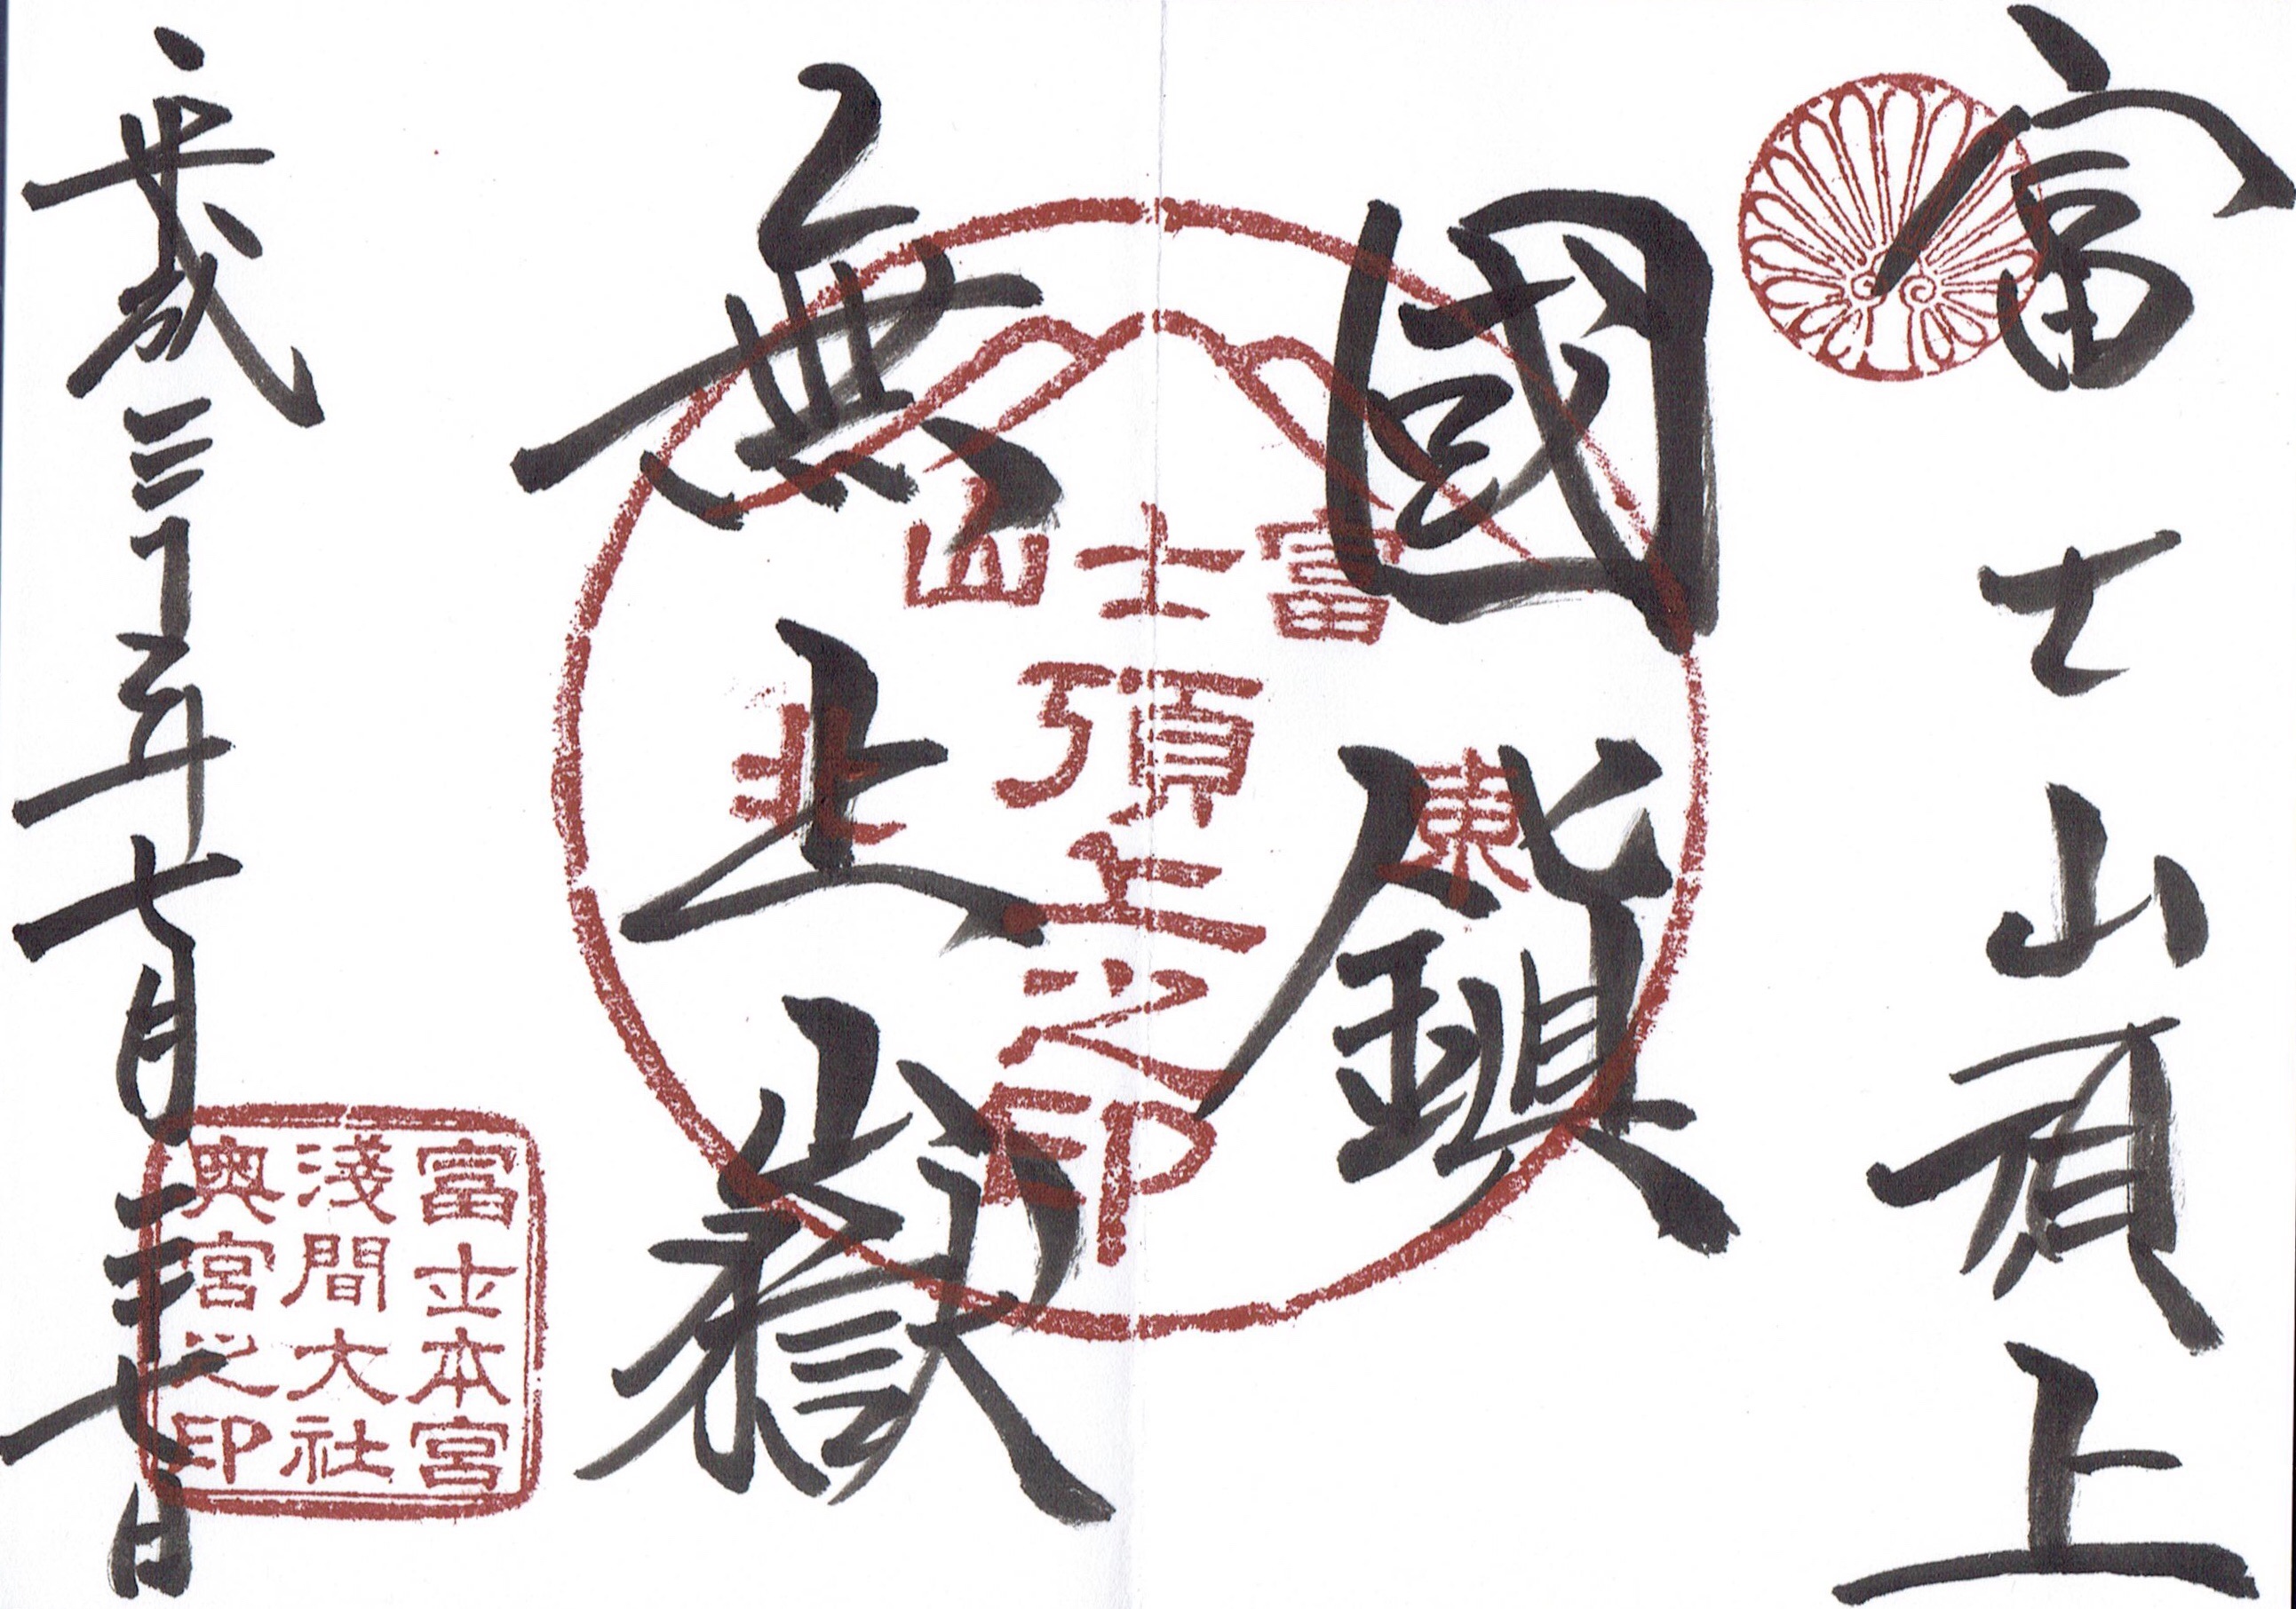 富士山頂上
國鎭
無上嶽
富士山
頂上之印
東
北
富士本宮
淺間大社
奥宮之印
平成三十年七月二十七日